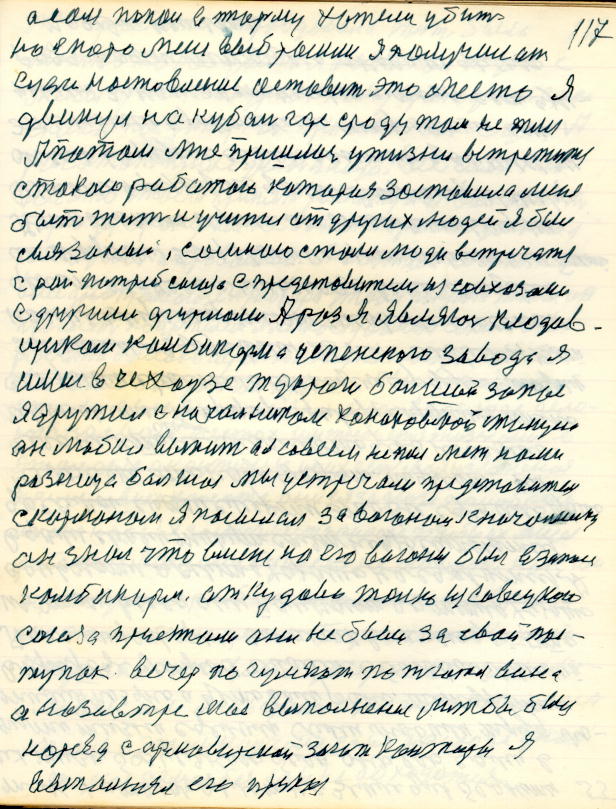 117
а сам попал в тюрму хотели убит
но скоро меня выбросили я получил от
суда постовление оставит это место Я
двинул на кубан где сроду там не жил
Я потом мне пришлос у жизни встретить
с такою работою которая заставила меня
быт жит и учится от других людей я был
связаный, со мною стали люди встречатся
с рай потреб союза с представители из совхозами
с другими фирмами А раз Я являюс кладов-
щиком комбикорма успенского завода Я
имел в чехаузе большой запас
Я дружил с началником коноковской станции
он любил выпит а я совсем не пил меж нами
разница большая мы встречали представител
с карманом Я посылал за вагоном к началнику
он знал что в мене на его вагоны был в запасе
комбикорм. от кудова только из совецкого
союза приезжали они не были за свой
вечер погуляют попьют вина
а назавтре мое выполнение
наряд с армавирской заготконторы Я
выполнял его приказ